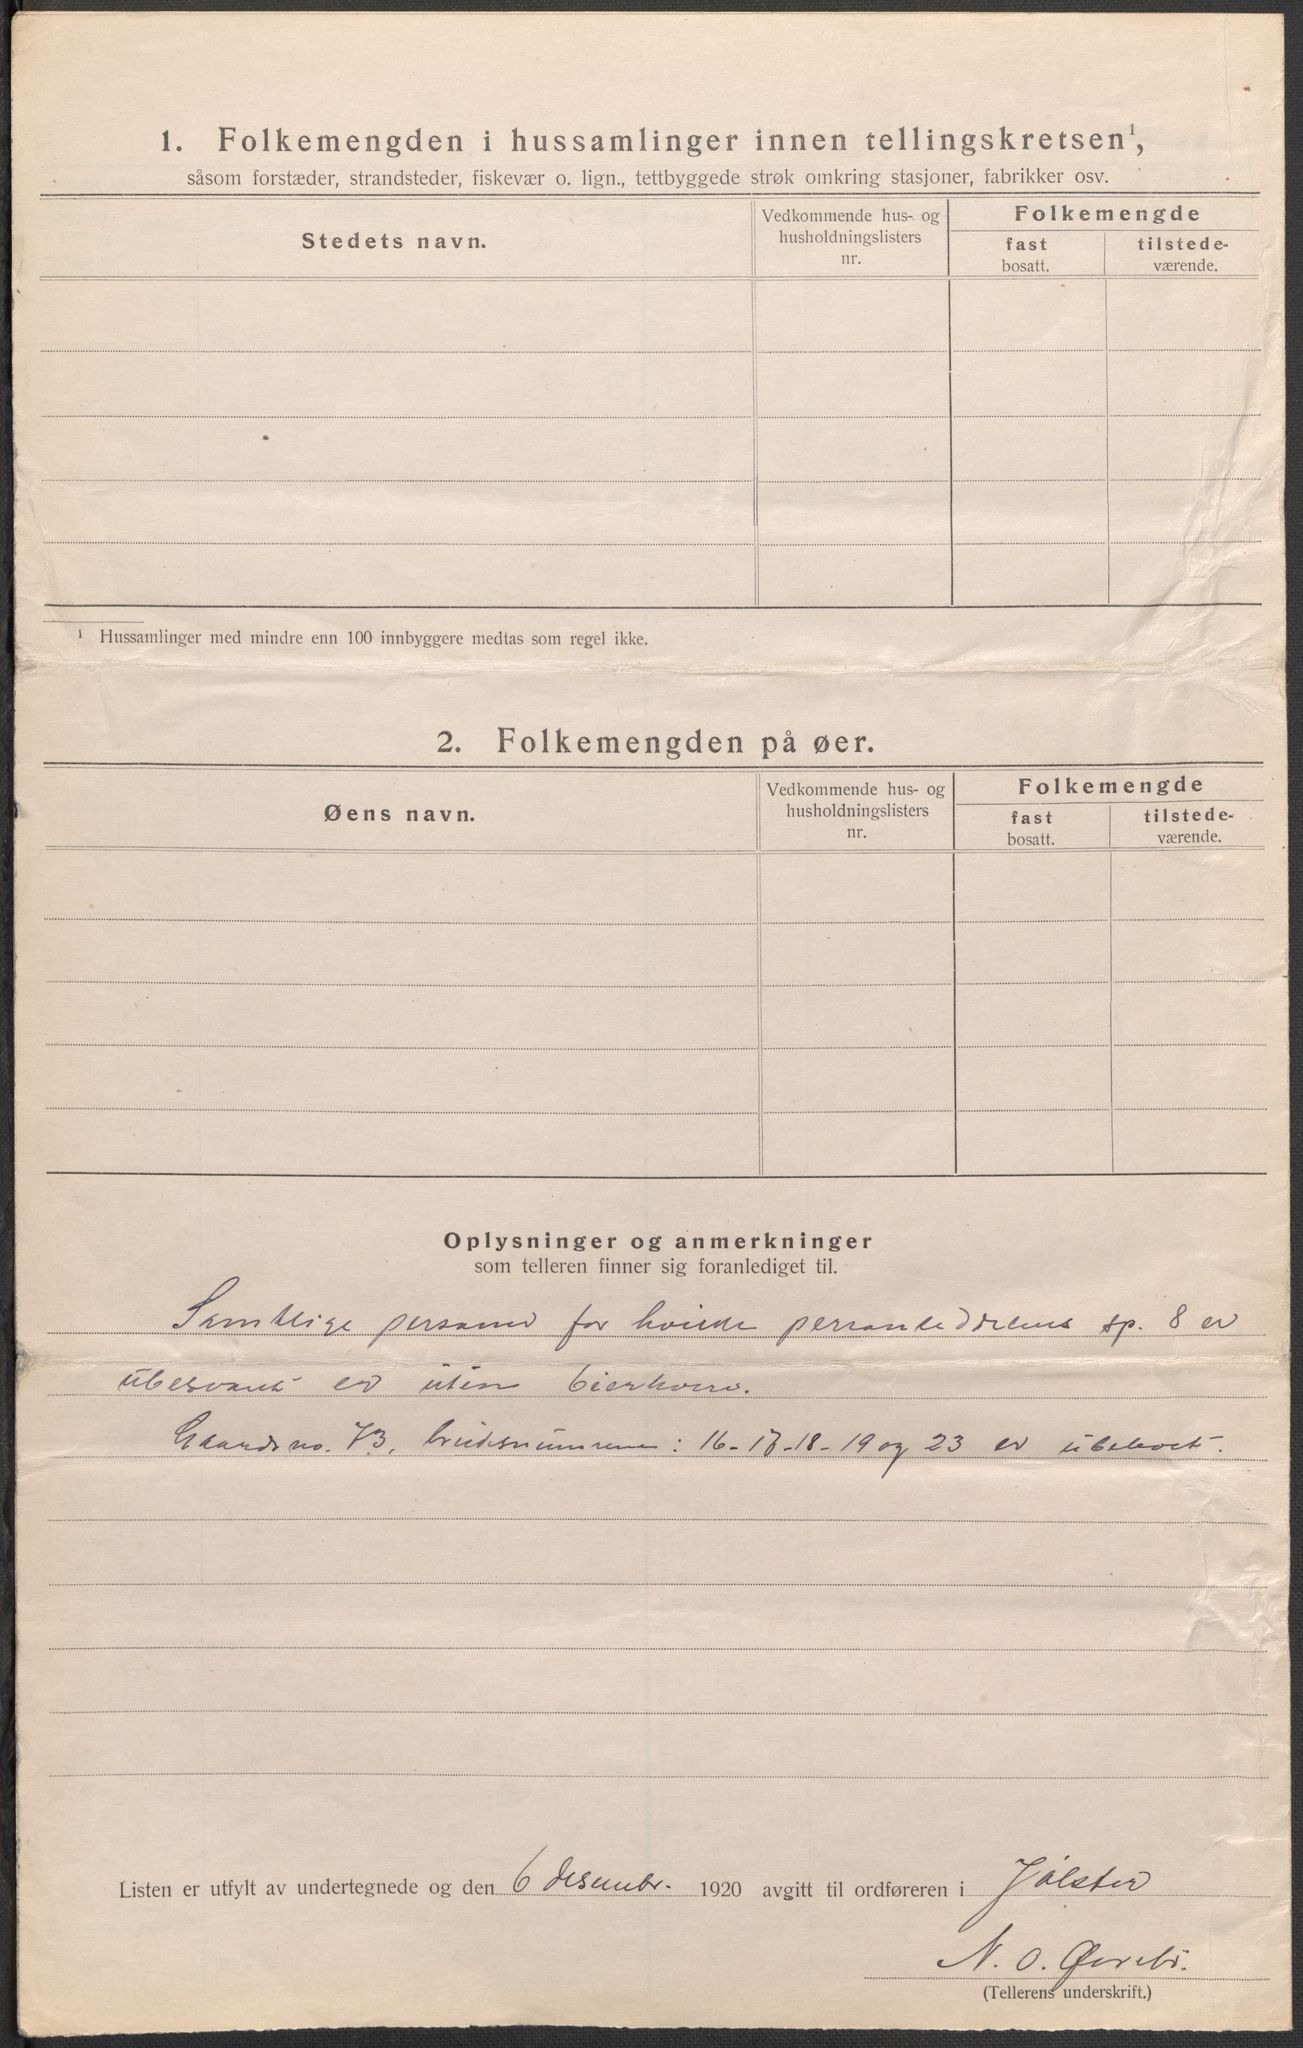 1. Folkemengden i hussamlinger innen tellingskretsen¹,
såsom forstæder, strandsteder, fiskevær o. lign., tettbyggede strøk omkring stasjoner, fabrikker osv.
Stedets navn.
Vedkommende hus- og
husholdningslisters
nr.
Folkemengde
fast
bosatt.
tilstede-
værende.
¹ Hussamlinger med mindre enn 100 innbyggere medtas som regel ikke.
2. Folkemengden på øer.
Øens navn.
Vedkommende hus- og
husholdningslisters
nr.
Folkemengde
fast
bosatt.
tilstede-
værende.
Oplysninger og anmerkninger
som telleren finner sig foranlediget til.
Samtlige personer for hvilke personseddelens sp. 8 er
ubesvart er uten bierhverv.
Gaards no. 73, bruksnummer: 16-17-18-19 og 23 er ubeboet.
Listen er utfylt av undertegnede og den 6 desembr. 1920 avgitt til ordføreren i Jølster
N. O. Øvrebø.
(Tellerens underskrift.)